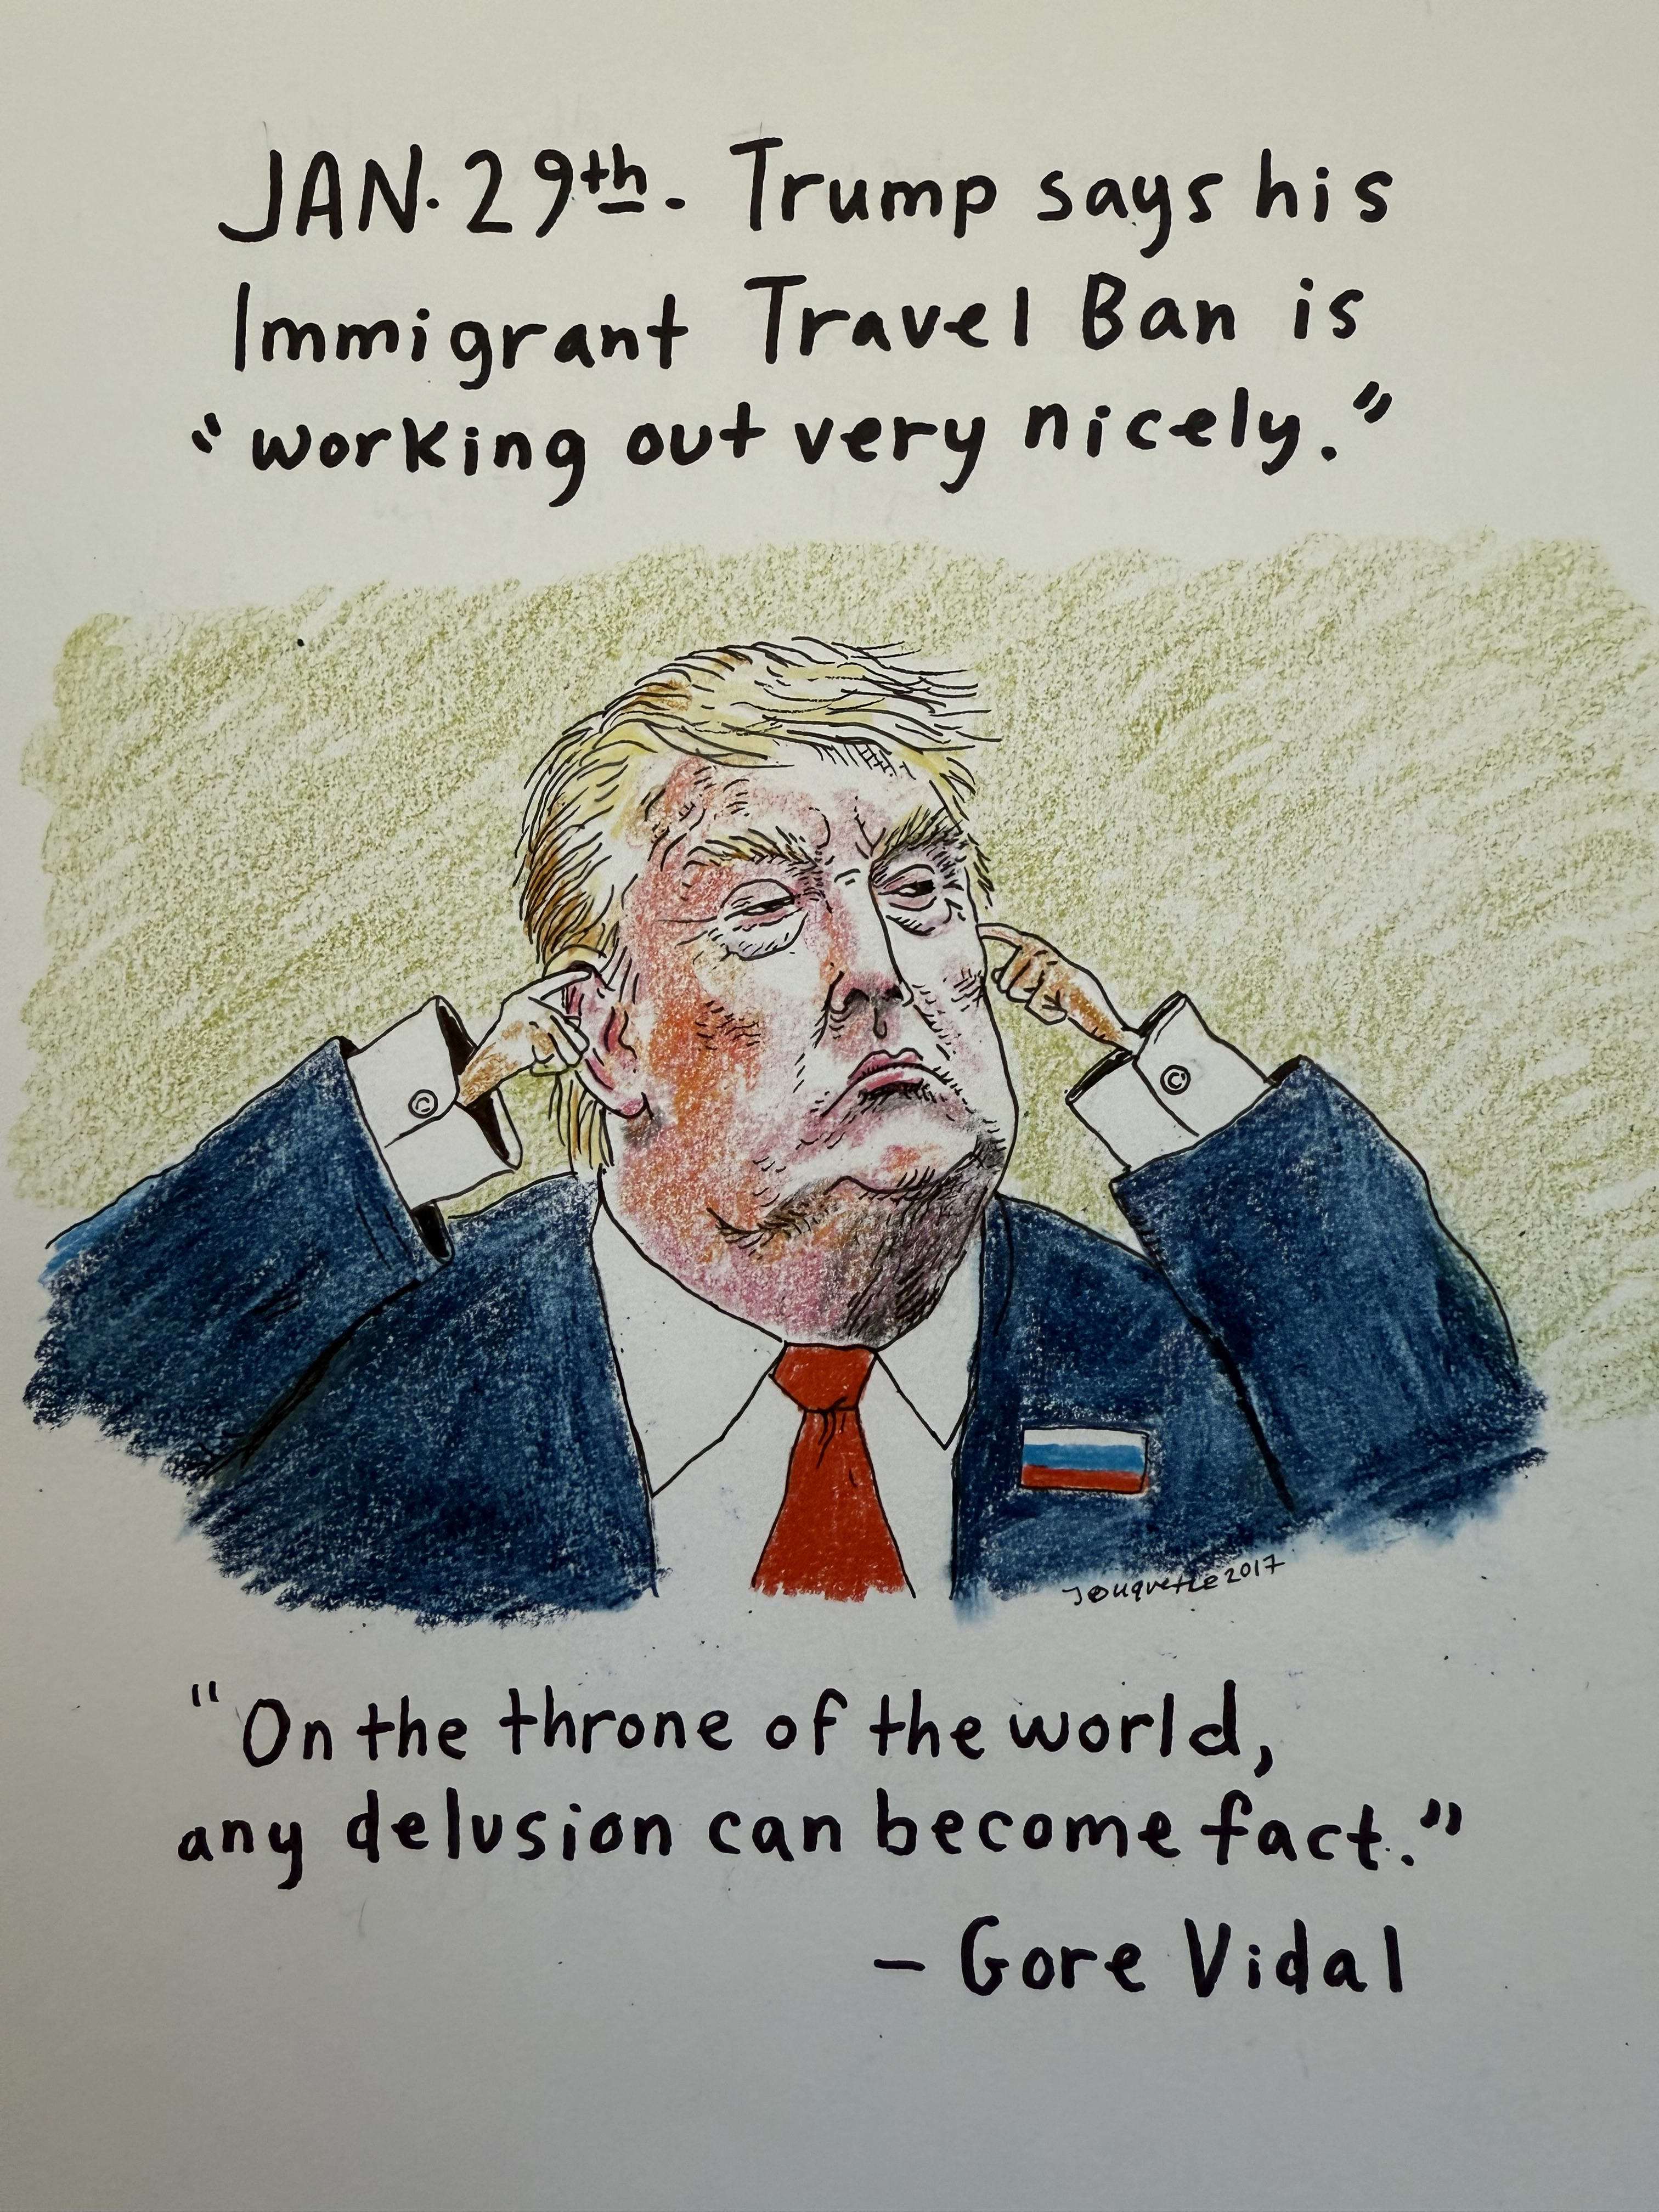 JAN. 29th. Trump says his
Immigrant Travel Ban is
"working out very nicely."
2017
"On the throne of the world,
any delusion can become fact."
— Gore Vidal